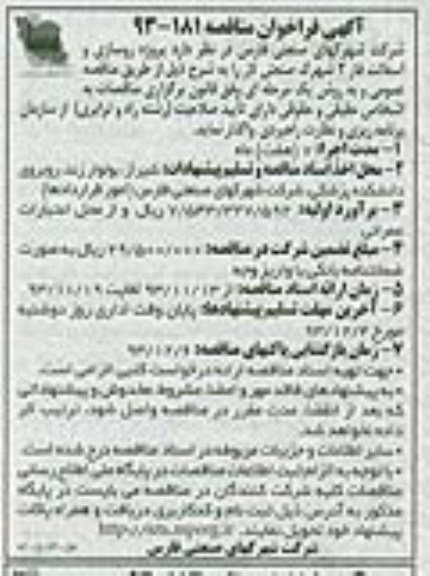 آگهی فراخوان مناقصه ۱۸۱-۹۳
شرکت شهرکهای صنعتی فارس در نظر دارد پروژه روسازی و
آسفالت فاز ۲ شهرک صنعتی لار را به شرح ذیل از طریق مناقصه
عمومی و به روش یک مرحله ای وفق قانون برگزاری مناقصات به
اشخاص حقیقی و حقوقی دارای تأیید صلاحیت (رشته راه و ترابری) از سازمان
برنامه ریزی و نظارت راهبردی واگذار نماید.
۱- مدت اجرا: ۷ (هفت) ماه
۲- محل اخذ اسناد مناقصه و تسلیم پیشنهادات: شیراز، بولوار زند، روبروی
دانشکده پزشکی، شرکت شهرکهای صنعتی فارس (امور قراردادها)
۳- برآورد اولیه: ریال و از محل اعتبارات
عمرانی
۴- مبلغ تضمین شرکت در مناقصه: ریال به صورت
ضمانتنامه بانکی یا واریز وجه
۵- زمان ارائه اسناد مناقصه: از ۹۳/۱۱/۱۳ لغایت ۹۳/۱۱/۱۹
۶- آخرین مهلت تسلیم پیشنهادها: پایان وقت اداری روز دوشنبه
مورخ
۷- زمان بازگشایی پاکتهای مناقصه:
• جهت تهیه اسناد مناقصه ارائه درخواست کتبی الزامی است.
• به پیشنهادهای فاقد مهر و امضا، مشروط، مخدوش و پیشنهاداتی
که بعد از انقضا مدت مقرر در مناقصه واصل شود، ترتیب اثر
داده نخواهد شد.
• سایر اطلاعات و جزییات مربوطه در اسناد مناقصه درج شده است.
• با توجه به الزام ثبت اطلاعات مناقصات در پایگاه ملی اطلاع رسانی
مناقصات کلیه شرکت کنندگان در مناقصه می بایست در پایگاه
مذکور به آدرس ذیل ثبت نام و کدکاربری دریافت و همراه پاکات
پیشنهاد خود تحویل نمایند.
شرکت شهرکهای صنعتی فارس